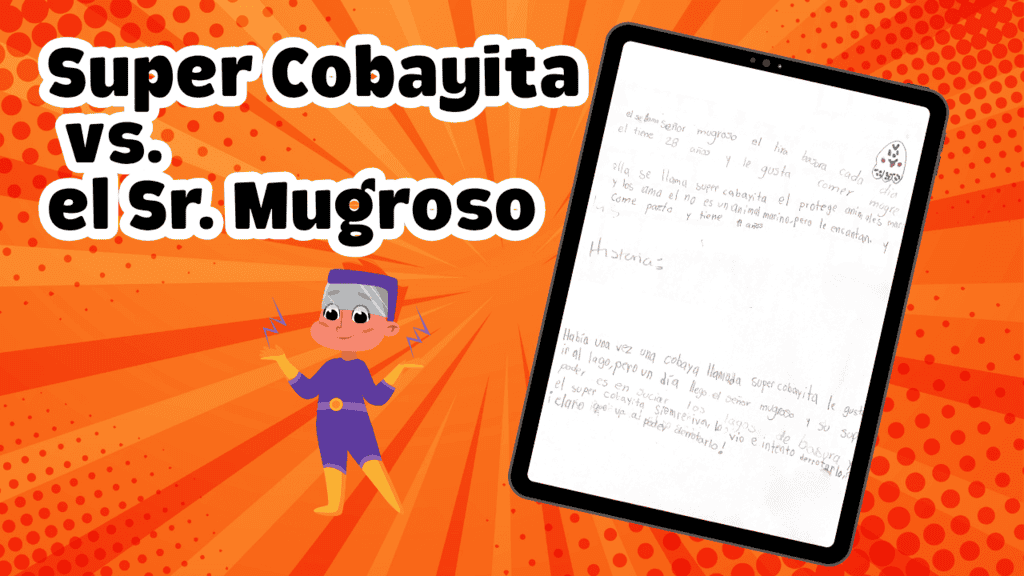 Super Cobayita
vs.
el Sr. Mugroso
señor mugroso el tira basura cada dia
el time 28 años y le gusta comer mugre
ella se llama super cabayita el protege animales
y los ama el no es un animal marino, pero le encantan y
come pasto y tiene 11 años
Historia:
Había una vez una cobaya llamada super cobayita le gust
ir al lago, pero un día llego el señor mugroso y su
poder es en suciar los lagos de basura,
el super cobayita lo vio e intento derrotarlo,
¡claro que ya al poder derrotarlo!